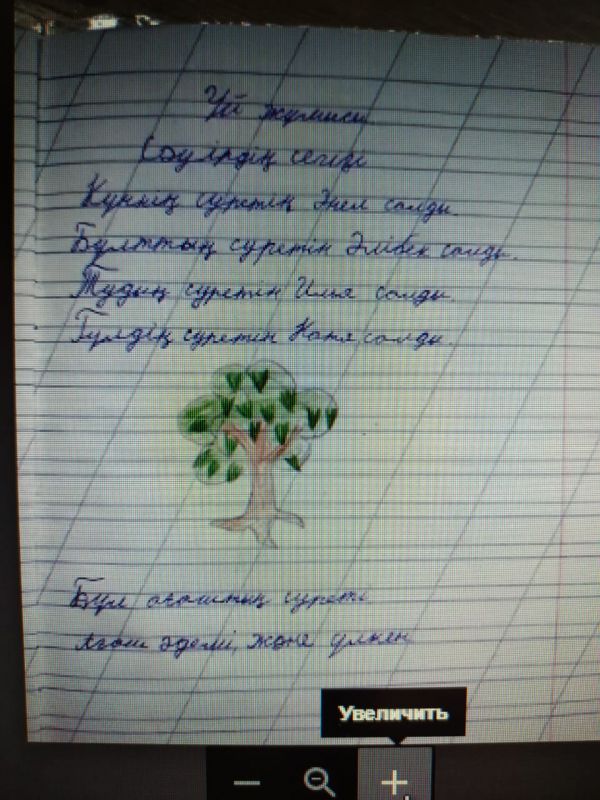 Үй жұмысы
Сәуірдің сегізі
Күннің суретін Әнел салды.
Бұлттың суретін Әлібек салды.
Тудың суретін Илья салды.
Гүлдің суретін Катя салды.
Бұл ағаштың суреті.
Ағаш әдемі, және үлкен
Увеличить